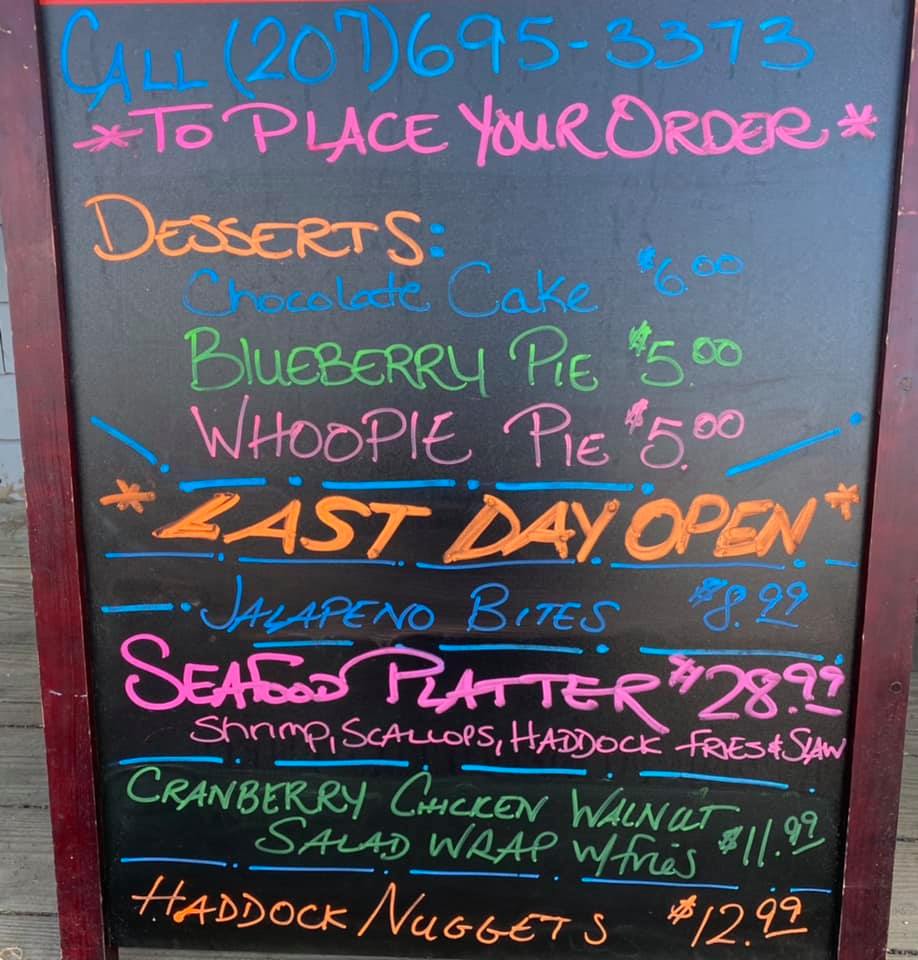 CALL (207)695-3373
*TO PLACE YOUR ORDER*
DESSERTS:
Chocolate Cake $6.00
BLUEBERRY PIE $5.00
WHOOPIE PIE $5.00
*LAST DAY OPEN*
JALAPENO BITES $8.99
SEAFOOD PLATTER $28.99
Shrimp, SCALLOPS, HADDOCK FRIES & SLAW
CRANBERRY CHICKEN WALNUT
SALAD WRAP w/fries $11.99
HADDOCK NUGGETS $12.99